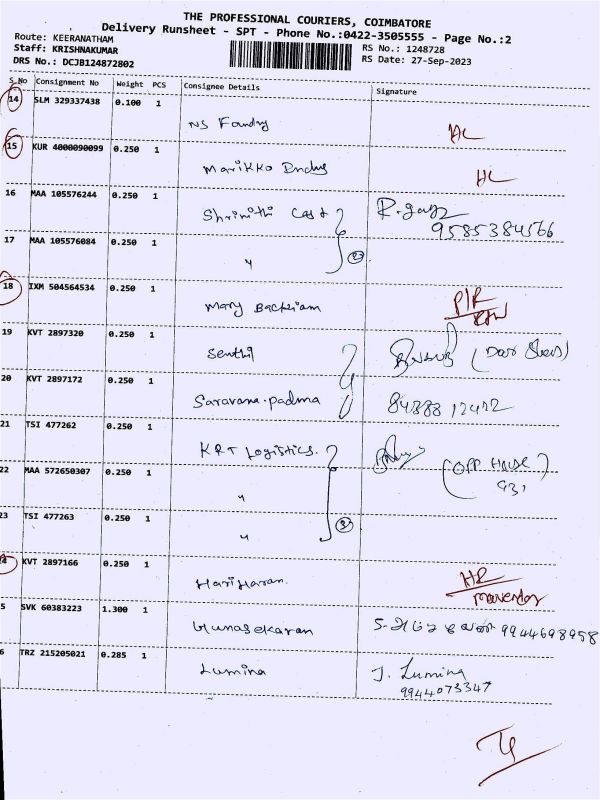 THE PROFESSIONAL COURIERS, COIMBATORE
Delivery Runsheet - SPT - Phone No.:0422-3505555 - Page No.:2
Route: KEERANATHAM
Staff: KRISHNAKUMAR RS No.: 1248728
DRS No.: DCJB124872802 RS Date: 27-Sep-2023
S.No Consignment No Weight PCS Consignee Details Signature
14 SLM 329337438 0.100 1
NS Foundry HL
15 KUR 4000090099 0.250 1
Marikko Indus HL
16 MAA 105576244 0.250 1
Shrinithi Cast 9585384566
17 MAA 105576084 0.250 1
"
18 IXM 504564534 0.250 1
Mary Backiam
19 KVT 2897320 0.250 1
Senthil
20 KVT 2897172 0.250 1
Saravana.padma
21 TSI 477262 0.250 1
KRT Logistics. (OPP HOUSE)
22 MAA 572650307 0.250 1
"
23 TSI 477263 0.250 1
" 3
24 KVT 2897166 0.250 1
HariHaran.
5 SVK 60383223 1.300 1
Gunasekaran 9944698958
6 TRZ 215205021 0.285 1
Lumina J. Lumina
9944073347